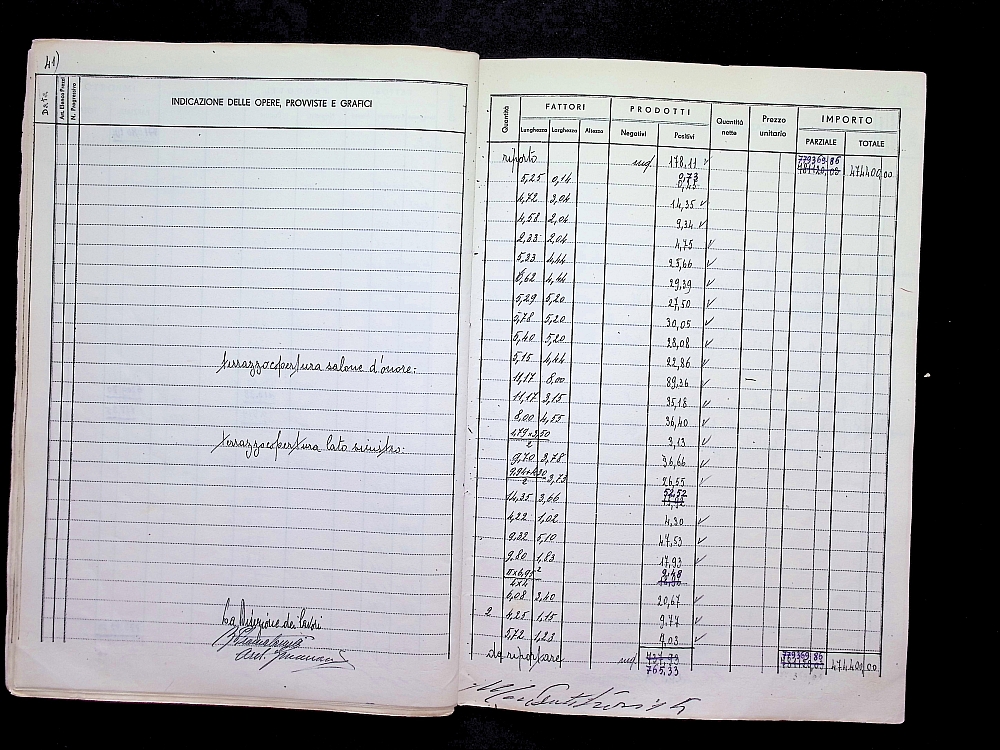 41)
Data
Art. Elenco Prezzi
N. Progressivo
INDICAZIONE DELLE OPERE, PROVVISTE E GRAFICI
terrazzo copertura salone d'onore:
terrazzo copertura lato sinistro:
La Direzione dei lavori
Quantità FATTORI PRODOTTI Quantità nette Prezzo unitario IMPORTO
Lunghezza Larghezza Altezza Negativi Positivi PARZIALE TOTALE
riporto mq. 178,11 779369,86 474400,00
5,25 0,14 0,73
4,72 3,04 14,35
4,58 2,04 9,34
2,33 2,04 4,75
5,33 4,44 23,66
6,62 4,44 29,39
5,29 5,20 27,50
5,78 5,20 30,05
5,40 5,20 28,08
5,15 4,44 22,86
11,17 8,00 89,36
11,17 3,15 35,18
8,00 4,55 36,40
1,79 × 3,50
2 3,13
9,70 3,78 36,66
2 3,73 26,55
14,35 3,66 52,52
4,22 1,02 4,30
9,32 5,10 47,53
9,80 1,83 17,93
4×4
6,08 3,40 20,67
2 4,25 1,15 9,77
5,72 1,23 7,03
da riportare mq. 779369,86 474400,00
765,33